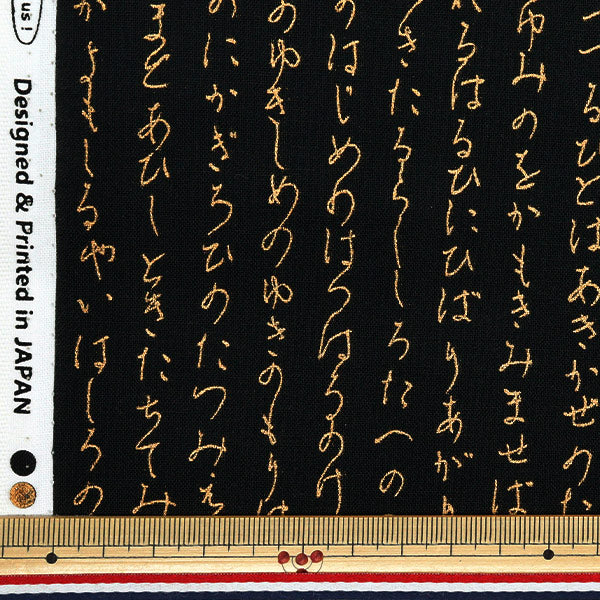 つるひとはあきかぜのた
ゆみのをかもきみませば
れるはるひにひばりあがり
きたるらししろたへの
のはじめのはつはるのけ
のゆきしめのゆきのもりは
のにかぎろひのたつみえ
まとあひしときたちてみ
がよもしるやいはしろの
us!
Designed & Printed in JAPAN